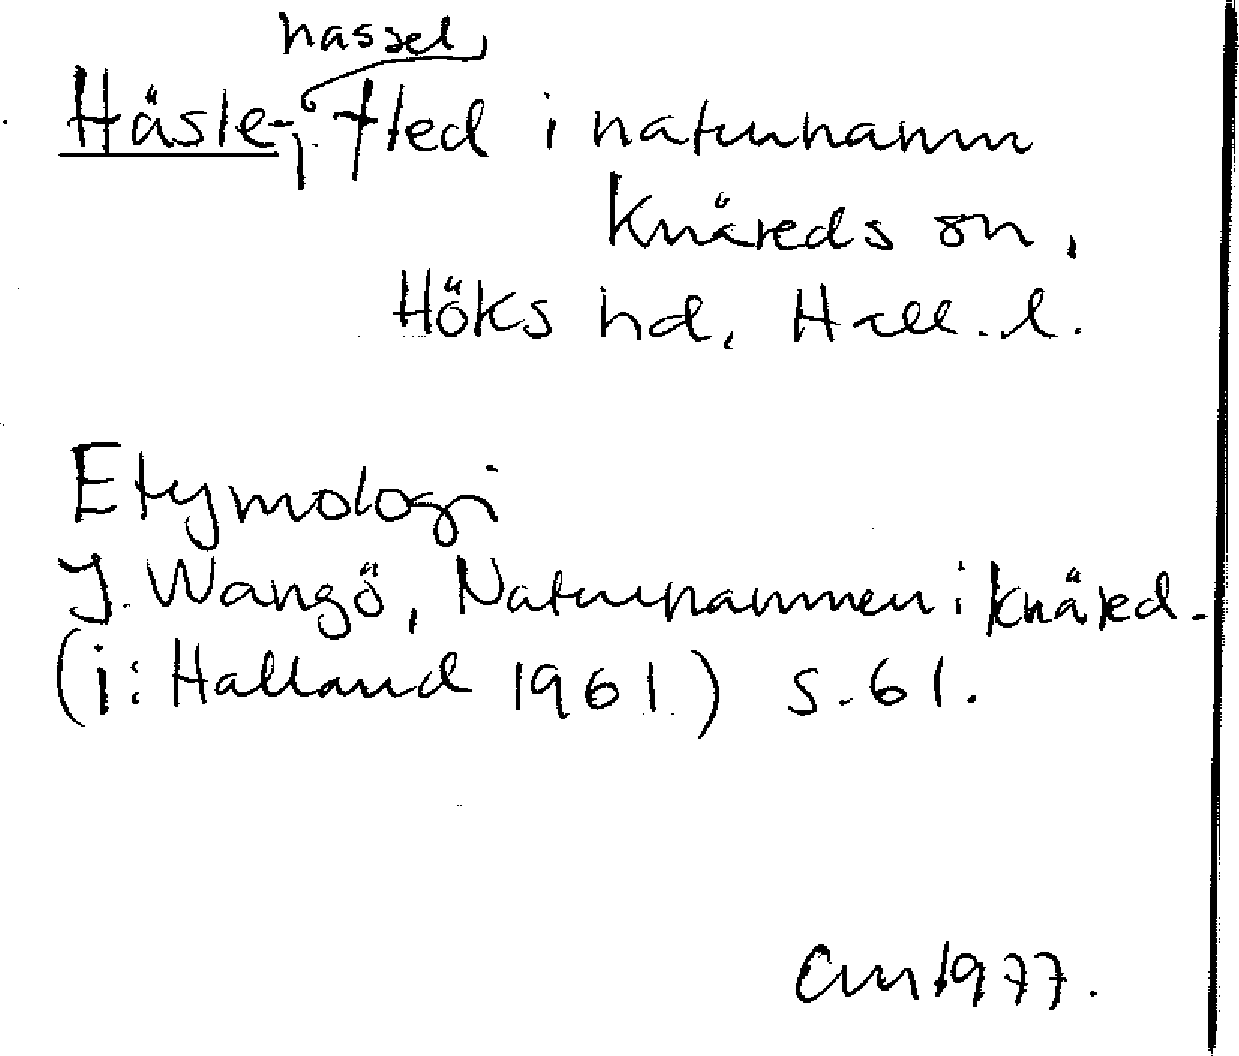 hassel,
Häsle-, fled i naturnamn
Knäreds sn,
Höks hd, Hall. l.
Etymologi
J. Wangö, Naturnamnen i Knäred.
(i: Halland 1961) s. 61.
1977.